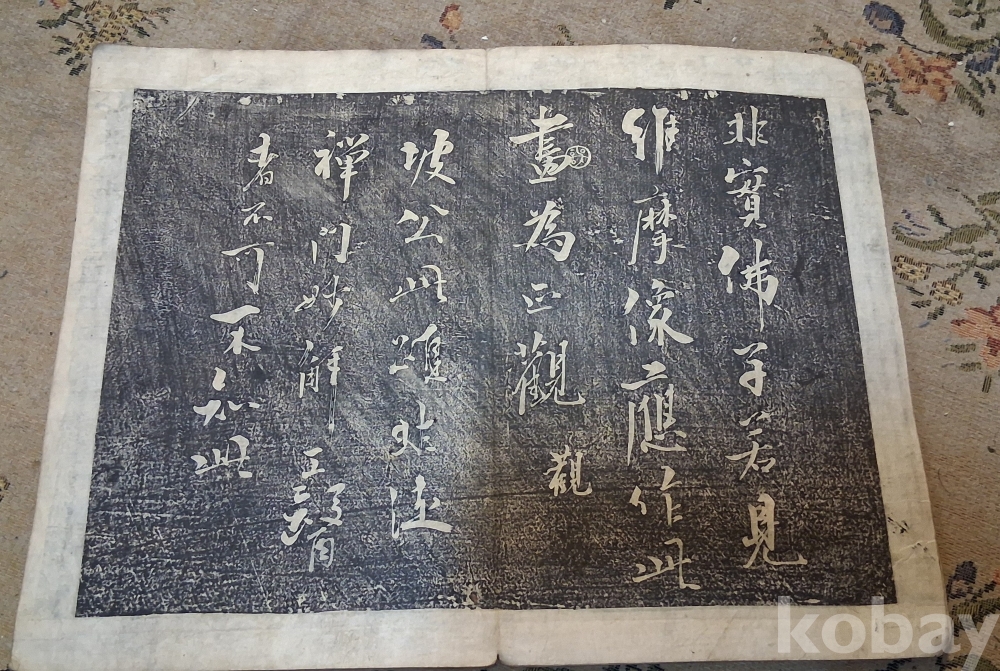 非實佛子若見
維摩像應作此
畫為正觀
觀
坡公此蹟非達
禪門妙解真賞
者不可不知此
kobay